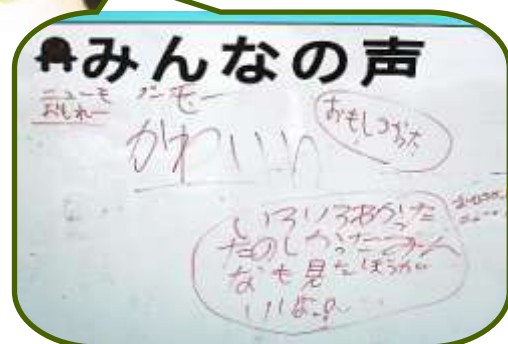 みんなの声
ニューモ
おしれー
ブンモー
かわいい
おもしろかった
いろいろあった
たのしかった
なも見たほうが
いいよ。